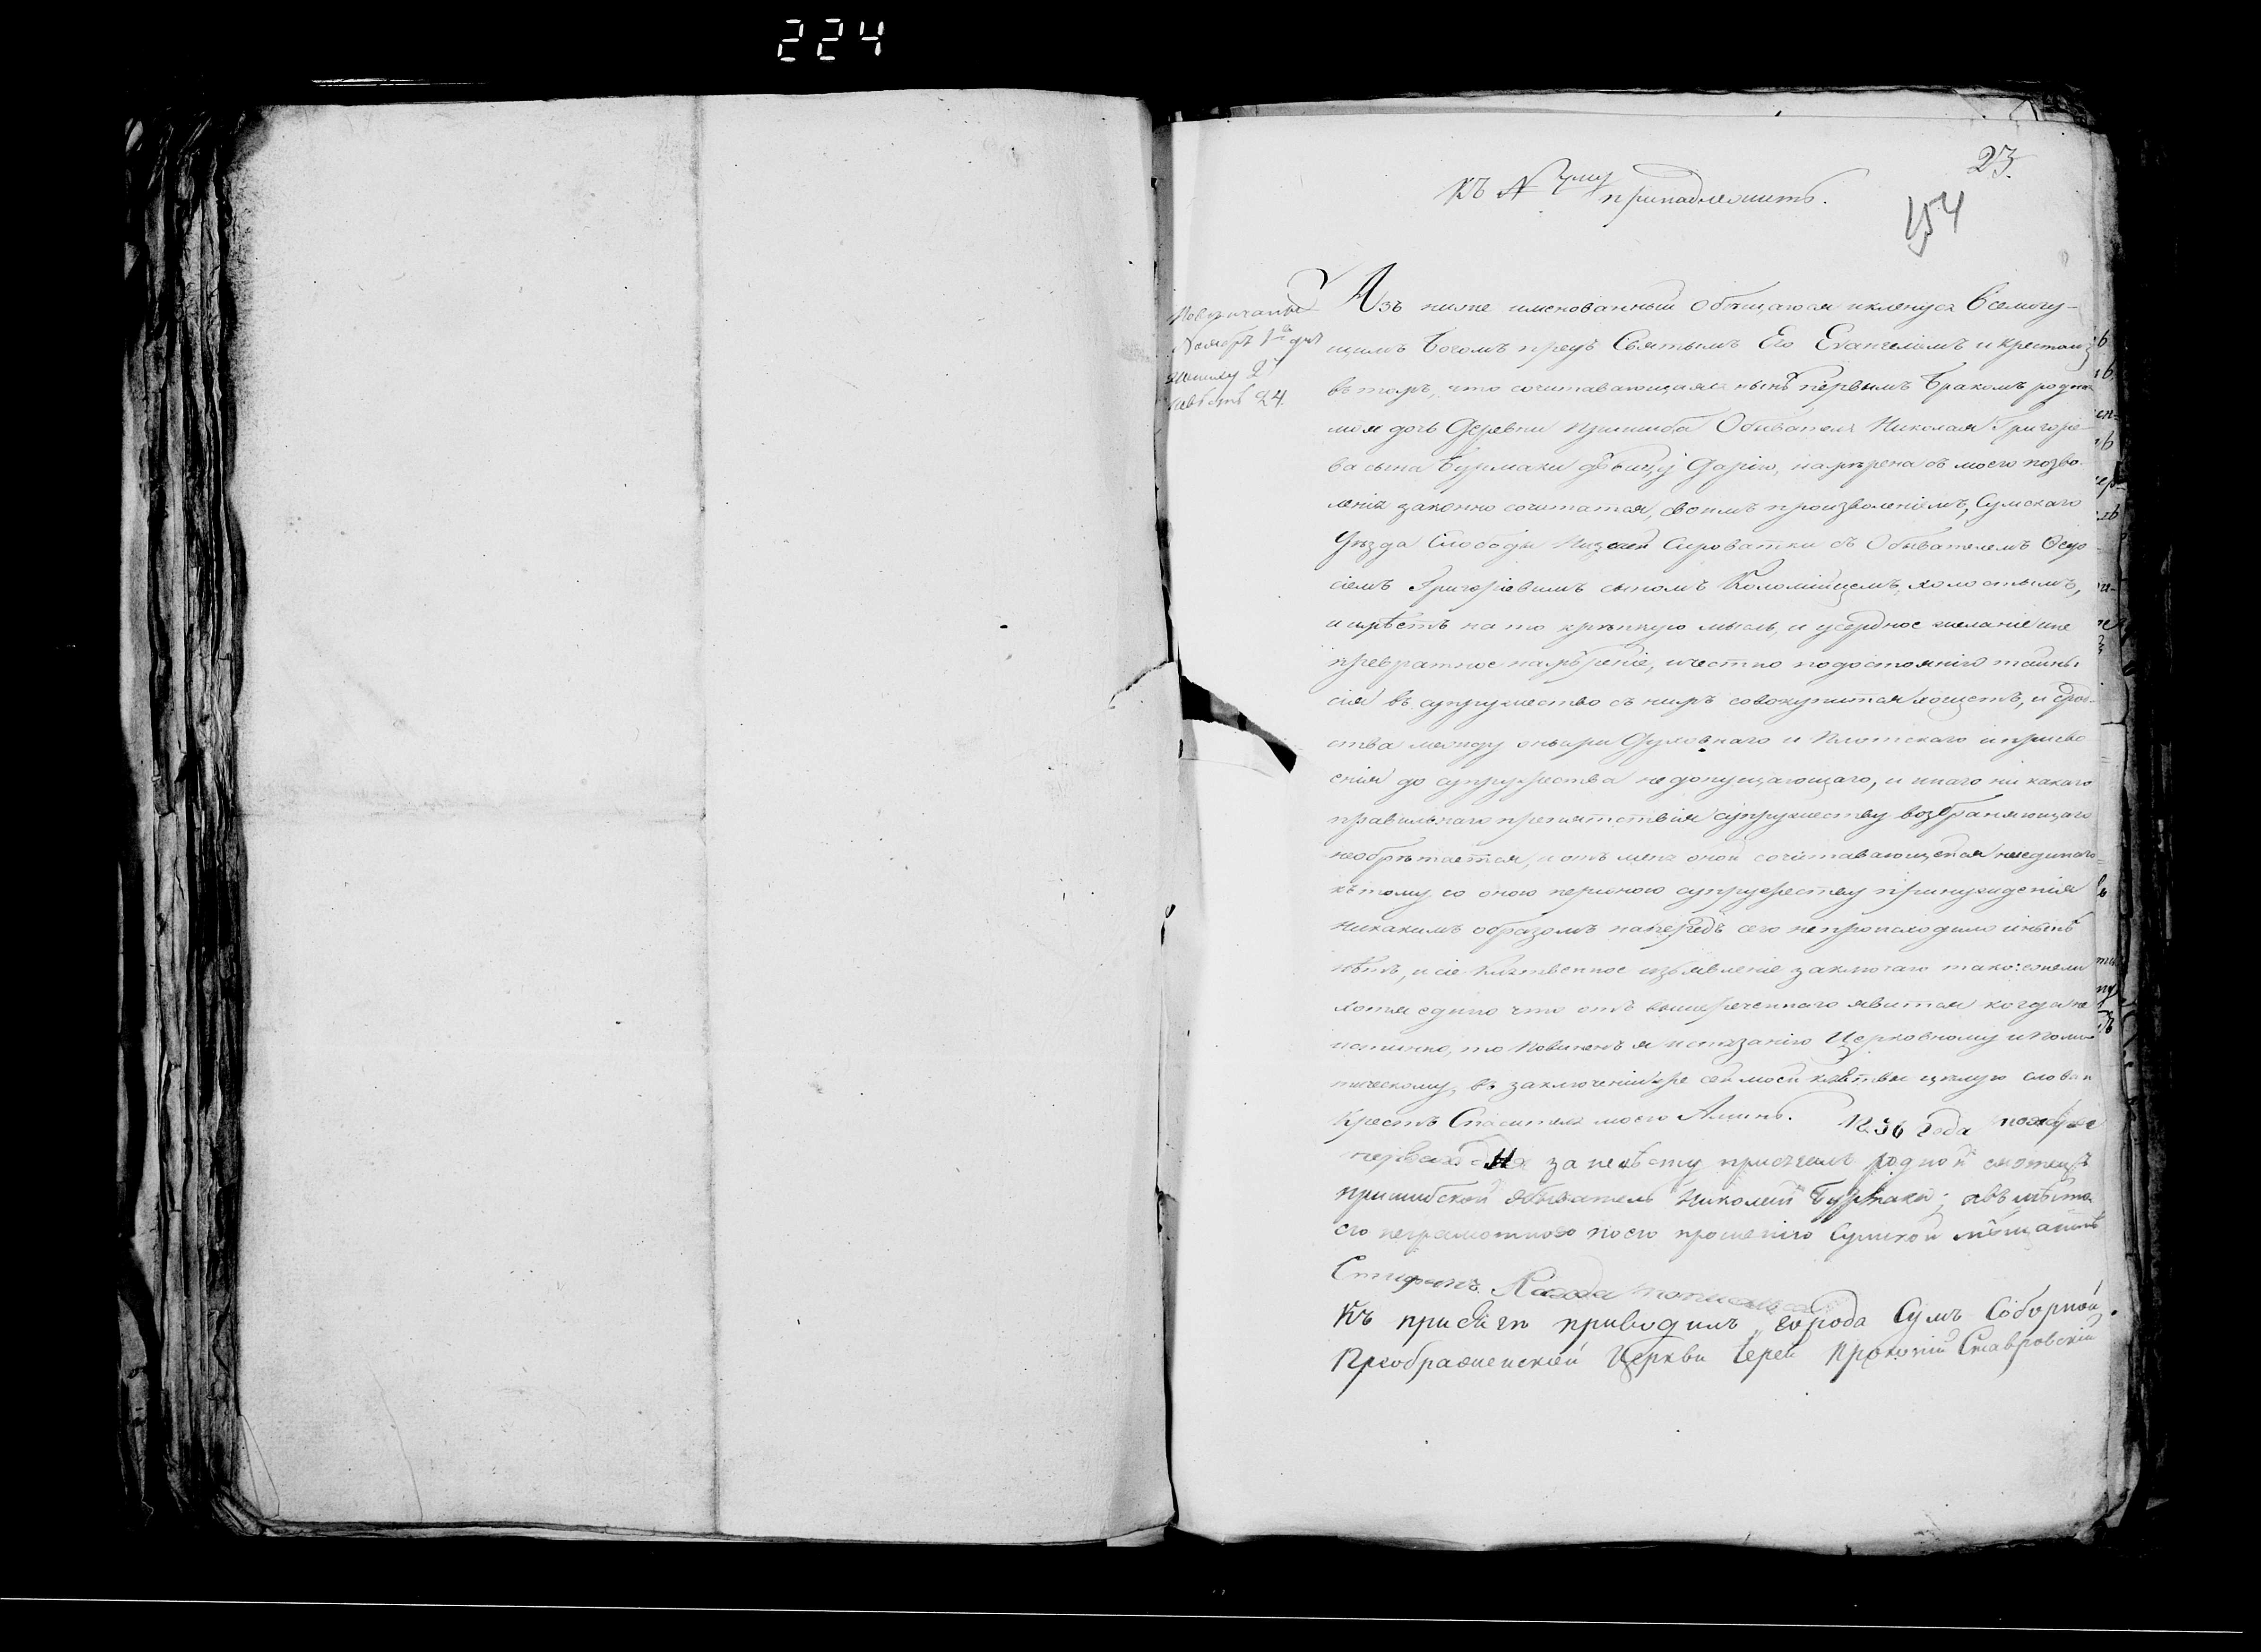 224
23.
Къ № 7му принадлежитъ.
154
Повѣнчаны
Ноября 1го дня
жениху 2
невѣстѣ 24.
Азъ ниже именованный обѣщаюся и кленуся Всемогу-
щимъ Богомъ предъ Святымъ Его Евангеліемъ и крестомъ
въ томъ, что сочитавающаяся нынѣ первымъ бракомъ родная
моя дочь Деревни Пришиба Обывателя Николая Григорье-
ва сына Бурмаки дѣвица Дарія, намѣрена съ моего позво-
ленія законно сочитатся, своимъ произволеніемъ, Сумскаго
Уѣзда Слободы Низшей Сироватки съ Обывателемъ Ѳедо-
сіемъ Григоріевимъ сыномъ Коломійцемъ, холостымъ,
и имѣетъ на то крѣпкую мысль, и усердное желаніе и не
превратное намѣреніе, и честно по достоянію тайны
сія въ супружество съ нимъ совокупится хощетъ, и срод-
ства между оными Духовнаго и Плотскаго и присво
енія до супружества недопущающаго, и инаго ни какаго
правильнаго препятствія супружеству возбраняющаго
необрѣтается, и отъ мене оной сочитавающейся ниединаго
къ тому со оною персоною супружеству принужденія
никакимъ образомъ напередъ сего непроисходило и нынѣ
нѣтъ, и сіе клятвенное изъявленіе заключаю тако: ежели
хотя едино что отъ вышереченнаго явится когда не
истинно, то повиненъ я истязанію Церковному и Поли
тическому, въ заключеніи же сей моей клятвы цѣлую слова и
Крестъ Спасителя моего Аминь. 1836 года ноября
перваго дня за невѣсту присягалъ родной отецъ
пришибской обыватель Николай Бурмака; а въ мѣсто
его неграмотного по его прошенію Сумской мѣщанинъ
Стифанъ подписался
Къ присягѣ приводилъ города Сумъ Соборной
Преображенской Церкви Іерей Прокопій Ставровскій